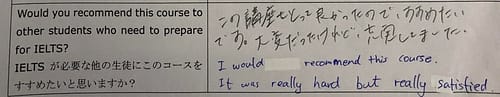 Would you recommend this course to
other students who need to prepare
for IELTS?
IELTS が必要な他の生徒にこのコースを
すすめたいと思いますか?
この講座をとって良かったので、すすめたい
です。大変だったけれど、しました。
I would recommend this course.
It was really hard but really satisfied